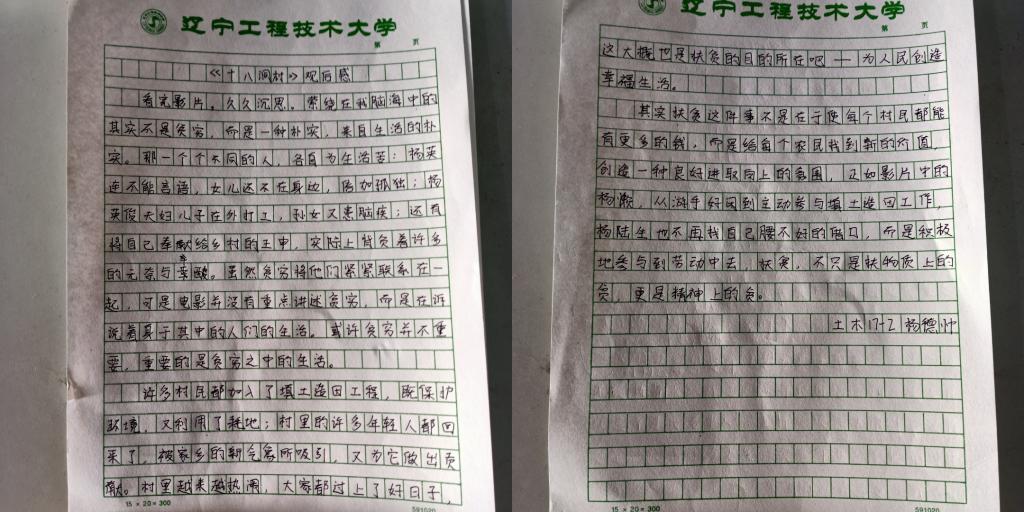 辽宁工程技术大学
第 页
《十八洞村》观后感
看完影片。久久沉思。萦绕在我脑海中的
其实不是贫穷，而是一种朴实，来自生活的朴
实。那一个个不同的人，各自为生活苦：杨英
连不能言语，女儿还不在身边，倍加孤独；杨
英俊夫妇儿子在外打工，孙女又患脑疾；还有
将自己奉献给乡村的王申，实际上背负着许多
的无奈与辛酸。虽然贫穷将他们紧紧联系在一
起，可是电影并没有重点讲述贫穷，而是在诉
说着身于其中的人们的生活。或许贫穷并不重
要，重要的是贫穷之中的生活。
许多村民都加入了填土造田工程，既保护
环境，又利用了耗地；村里的许多年轻人都回
来了，被家乡的新气象所吸引，又为它做出贡
献。村里越来越热闹，大家都过上了好日子，
15 × 20 = 300
591020
辽宁工程技术大学
第 页
这大概也是扶贫的目的所在吧——为人民创造
幸福生活。
其实扶贫这件事不是在于使每个村民都能
有更多的钱，而是给每个农民找到新的价值，
创造一种良好进取向上的氛围，正如影片中的
杨懒，从游手好闲到主动参与填土造田工作，
杨陆生也不再找自己腰不好的借口，而是积极
地参与到劳动中去，扶贫，不只是扶物质上的
贫，更是精神上的贫。
土木17-2 杨德帅
15 × 20 = 300
591020